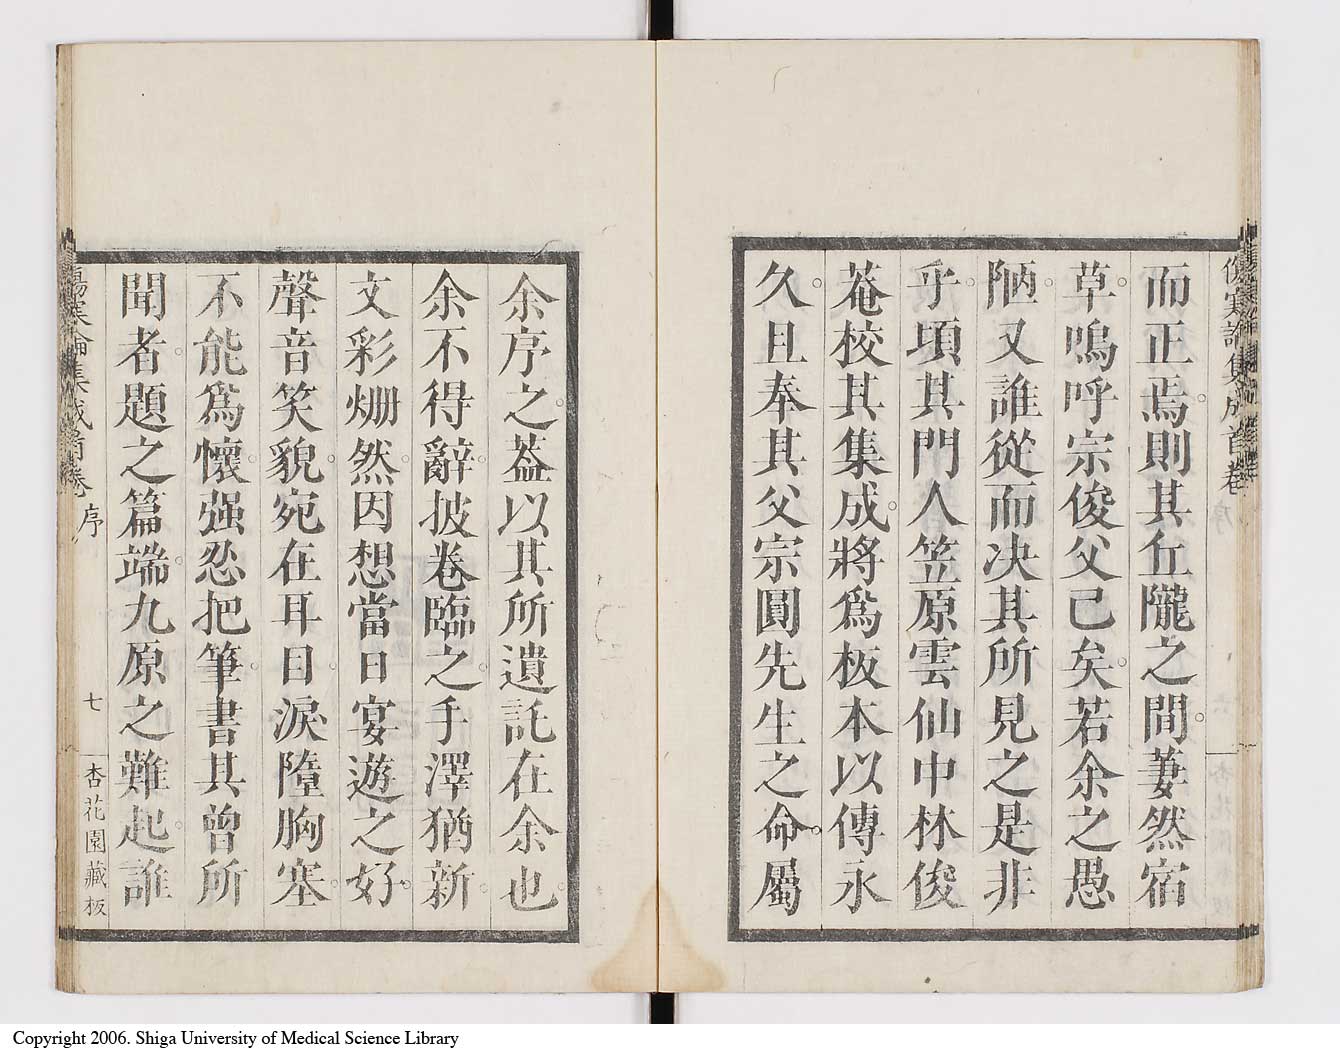 傷寒論集成首卷
序
六
杏花園藏板
而正焉則其丘隴之間萋然宿
草嗚呼宗俊父已矣若余之愚
陋又誰從而决其所見之是非
乎頃其門人笠原雲仙中林俊
菴校其集成將爲板本以傳永
久且奉其父宗圓先生之命屬
余序之葢以其所遺託在余也
余不得辭披卷臨之手澤猶新
文彩炳然因想當日宴遊之好
聲音笑貌宛在耳目淚墮胸塞
不能爲懷强忍把筆書其曾所
聞者題之篇端九原之難起誰
傷寒論集成首卷
序
七
杏花園藏板
Copyright 2006. Shiga University of Medical Science Library